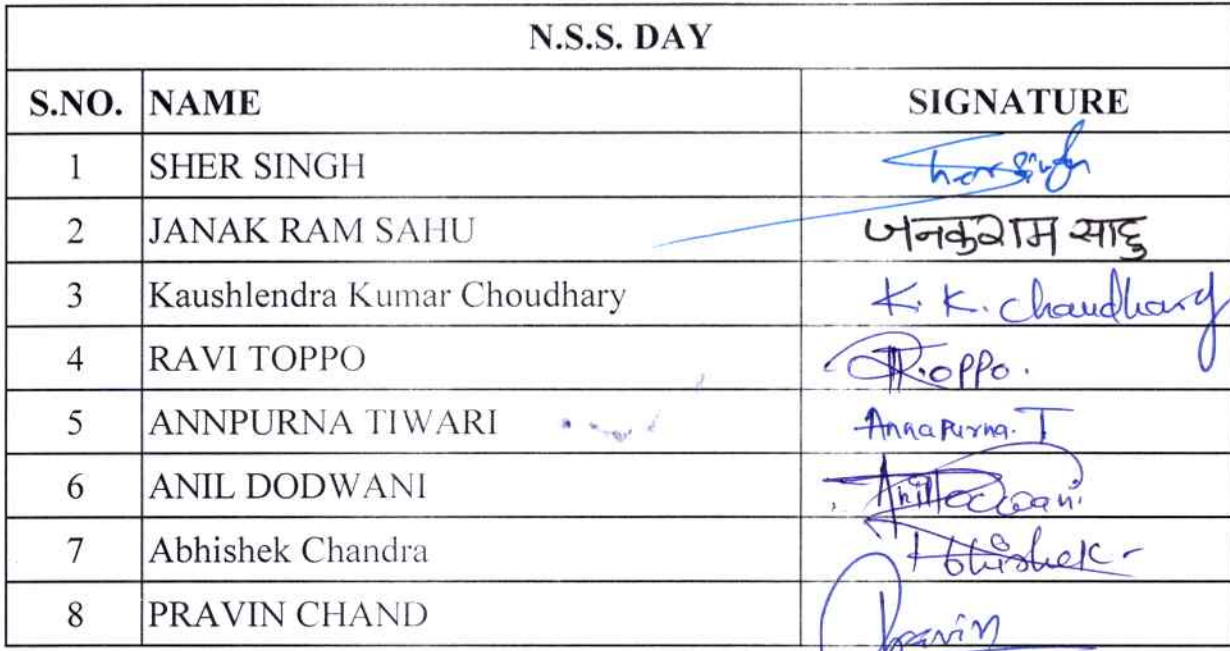 N.S.S. DAY
S.NO. NAME SIGNATURE
1 SHER SINGH Sher Singh
2 JANAK RAM SAHU जनकराम साहु
3 Kaushlendra Kumar Choudhary K. K. Chaudhary
4 RAVI TOPPO R.Toppo.
5 ANNPURNA TIWARI Annapurna. T
6 ANIL DODWANI Anil Dodwani
7 Abhishek Chandra Abhishek
8 PRAVIN CHAND Pravin